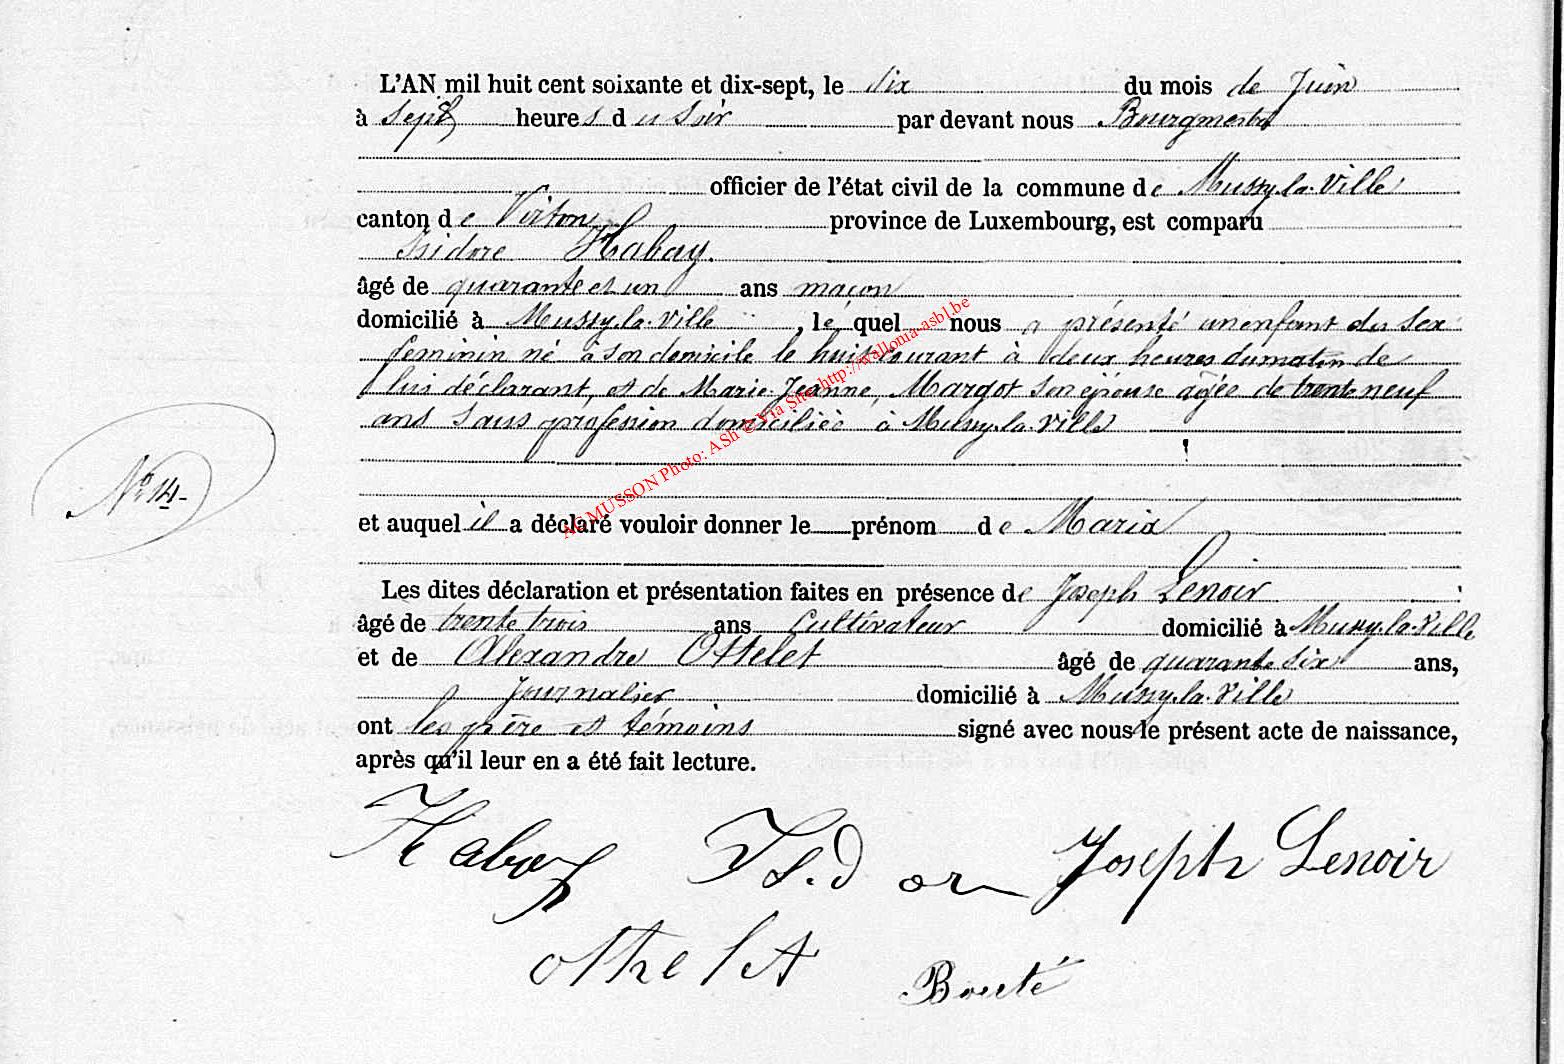 L'AN mil huit cent soixante et dix-sept, le dix du mois de Juin
à sept heures du soir par devant nous Bourgmestre
officier de l'état civil de la commune de Mussy-la-Ville
canton de Virton province de Luxembourg, est comparu
Isidore Habay.
âgé de quarante et un ans maçon
domicilié à Mussy-la-Ville, le quel nous a présenté un enfant du sexe
feminin né à son domicile le huit courant à deux heures du matin de
lui déclarant, et de Marie-Jeanne Margot son épouse âgée de trente neuf
ans sans profession domiciliée à Mussy-la-Ville
No 14
et auquel il a déclaré vouloir donner le prénom de Maria
Les dites déclaration et présentation faites en présence de Joseph Lenoir
âgé de trente trois ans Cultivateur domicilié à Mussy-la-Ville
et de Alexandre Ottelet âgé de quarante six ans,
Journalier domicilié à Mussy-la-Ville
ont les père et témoins signé avec nous le présent acte de naissance,
après qu'il leur en a été fait lecture.
Habay Isidor Joseph Lenoir
othelet Bouté
AC MUSSON Photo: ASh © Via Site http://wallonia-asbl.be